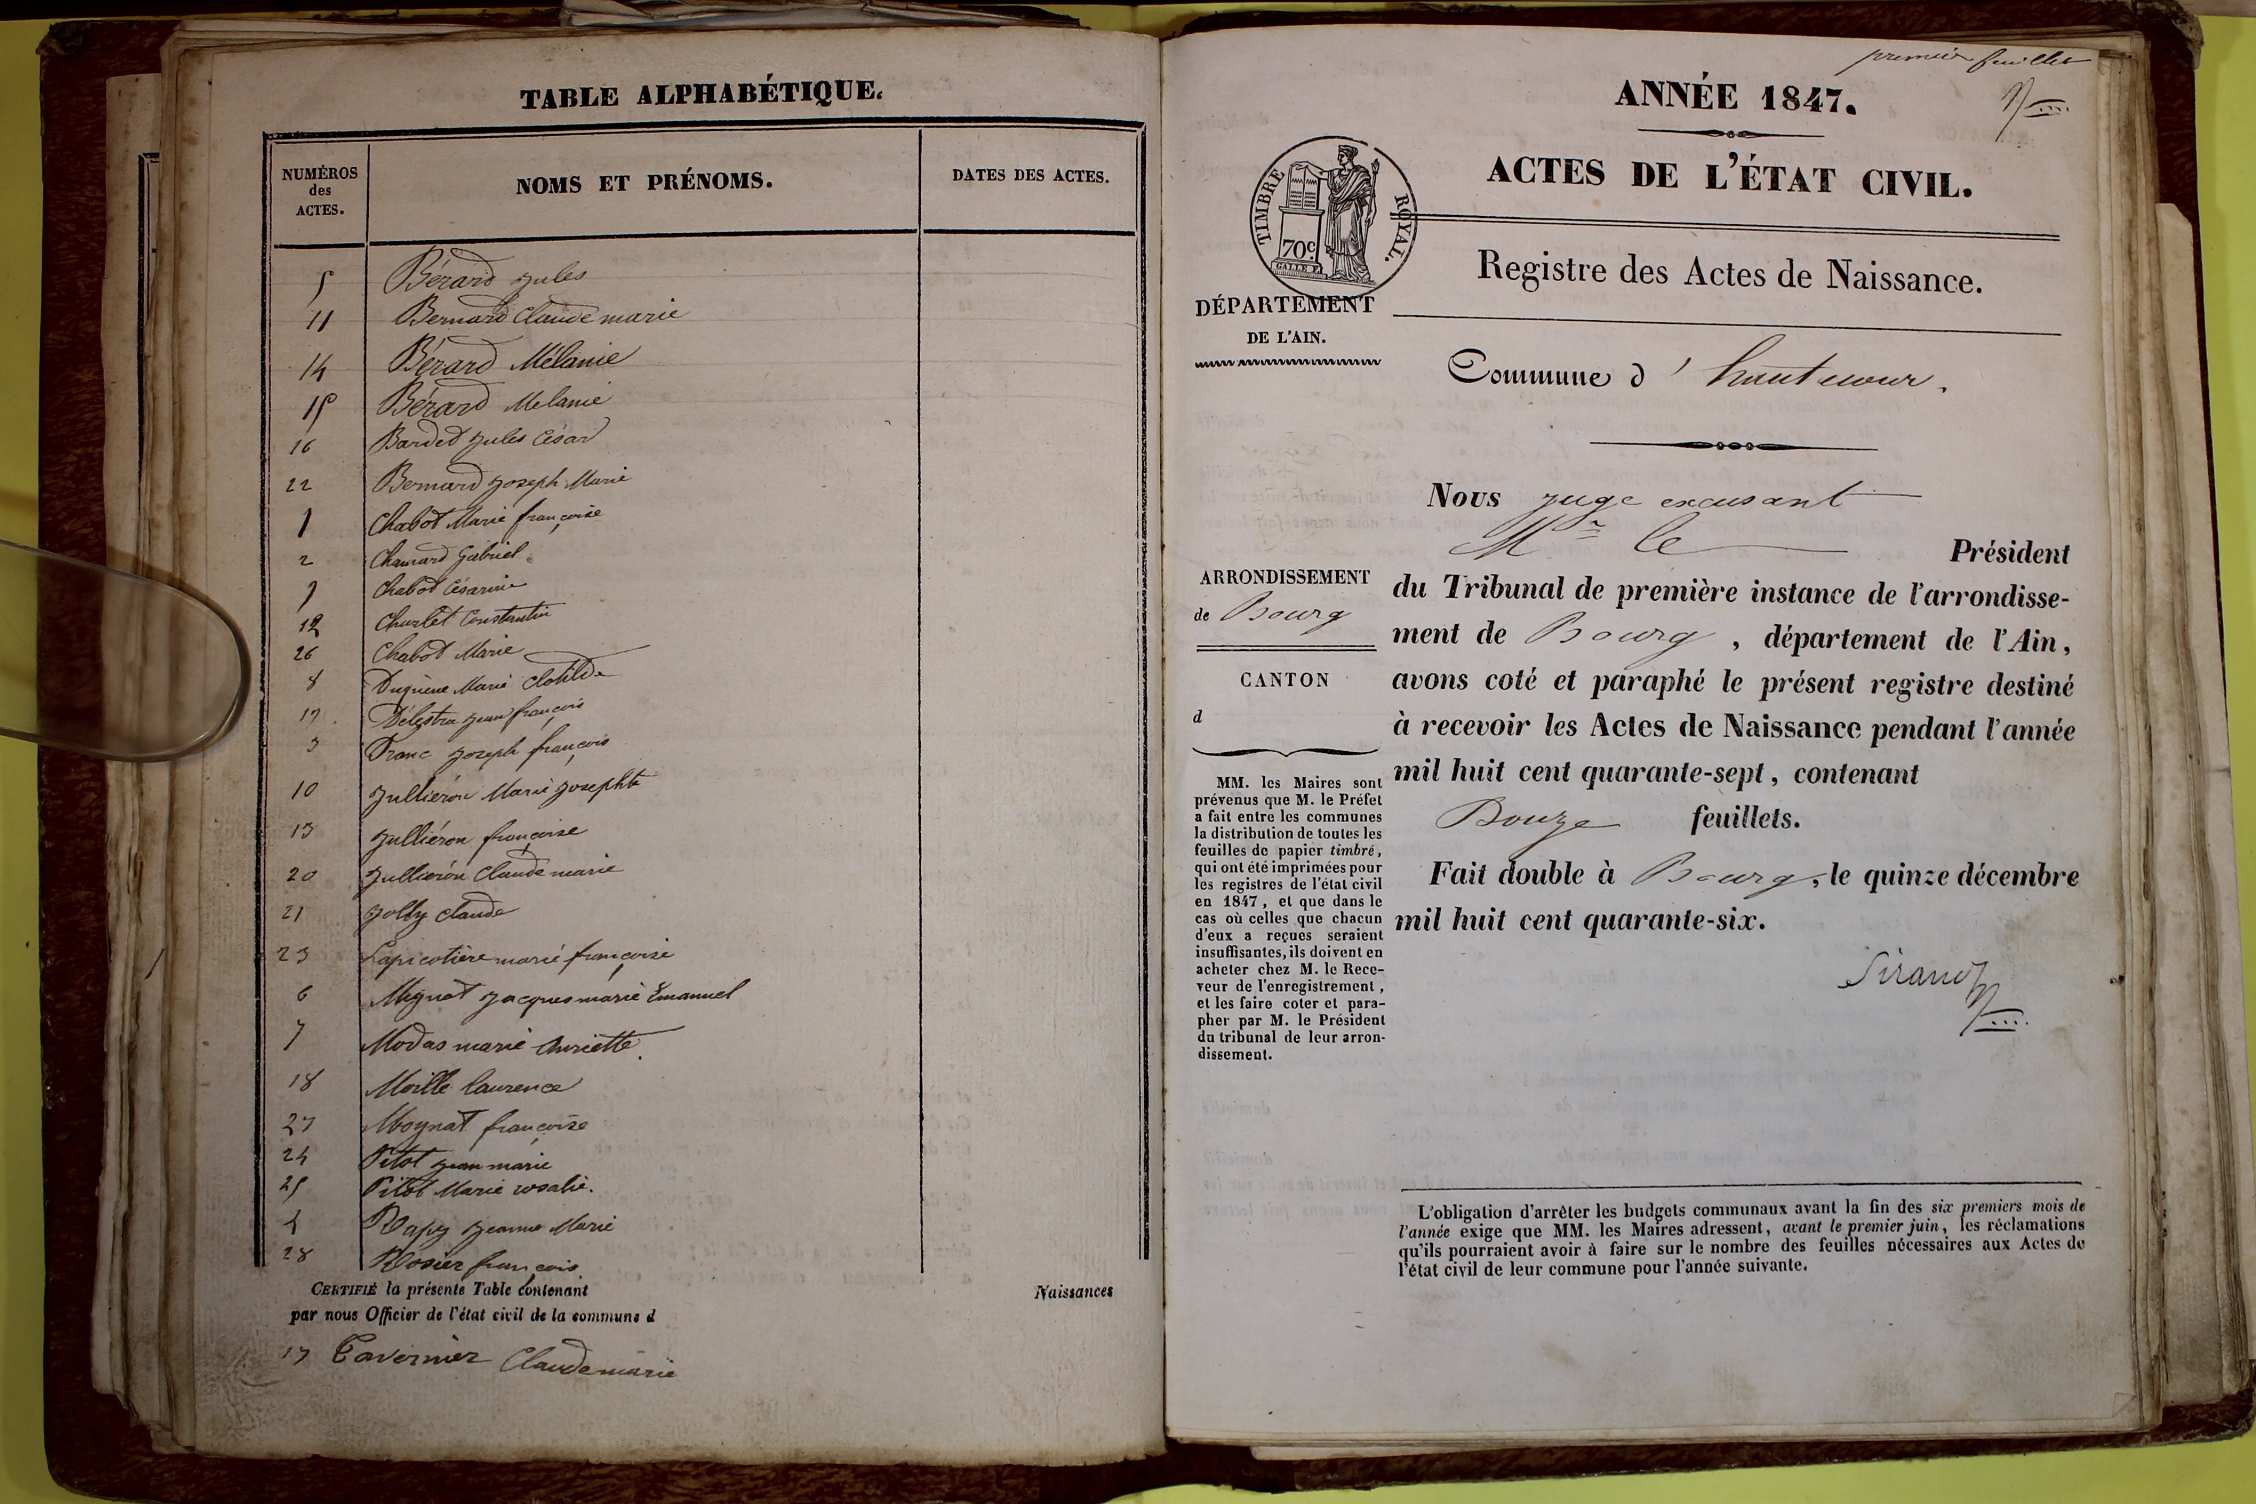 TABLE ALPHABÉTIQUE.
NUMÉROS des ACTES.
NOMS ET PRÉNOMS.
DATES DES ACTES.
5 Bérard Jules
11 Bernard Claude marie
14 Bérard Mélanie
15 Bérard Melanie
16 Bardet Jules César
22 Bernard Joseph Marie
1 Chabot Marie françoise
2 Chanard Gabriel
9 Chabot Césarine
12 Charlet Constantin
26 Chabot Marie
8 Duquene Marie Clotilde
17 Délestra Jean françois
3 Franc Joseph françois
10 Jullieron Marie Josephte
13 Julliéron françoise
20 Jullieron Claude marie
21 Jolly Claude
23 Lapicotière marie françoise
6 Mignot Jacques marie Emanuel
7 Modas marie
18 Moille laurence
27 Moynat françoise
24 Pitot Jean marie
25 Pitot Marie rosalie.
4 Rapy Jeanne Marie
28 Rosier françois
CERTIFIÉ la présente Table contenant Naissances
par nous Officier de l'état civil de la commune d
Tavernier Claude marie
premier feuillet
ANNÉE 1847.
ACTES DE L'ÉTAT CIVIL.
TIMBRE ROYAL.
70c
Registre des Actes de Naissance.
DÉPARTEMENT
DE L'AIN.
Commune d' hautecour.
Nous juge excusant
Mr le Président
ARRONDISSEMENT
de Bourg
CANTON
d
du Tribunal de première instance de l'arrondisse-
ment de Bourg, département de l'Ain,
avons coté et paraphé le présent registre destiné
à recevoir les Actes de Naissance pendant l'année
mil huit cent quarante-sept, contenant
Douze feuillets.
Fait double à Bourg, le quinze décembre
mil huit cent quarante-six.
Sirand
MM. les Maires sont
prévenus que M. le Préfet
a fait entre les communes
la distribution de toutes les
feuilles de papier timbré,
qui ont été imprimées pour
les registres de l'état civil
en 1847, et que dans le
cas où celles que chacun
d'eux a reçues seraient
insuffisantes, ils doivent en
acheter chez M. le Rece-
veur de l'enregistrement,
et les faire coter et para-
pher par M. le Président
du tribunal de leur arron-
dissement.
L'obligation d'arrêter les budgets communaux avant la fin des six premiers mois de
l'année exige que MM. les Maires adressent, avant le premier juin, les réclamations
qu'ils pourraient avoir à faire sur le nombre des feuilles nécessaires aux Actes de
l'état civil de leur commune pour l'année suivante.